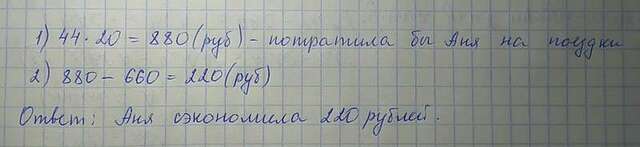 1) 44 · 20 = 880 (руб) - потратила бы Аня на поездки
2) 880 - 660 = 220 (руб)
Ответ: Аня сэкономила 220 рублей.